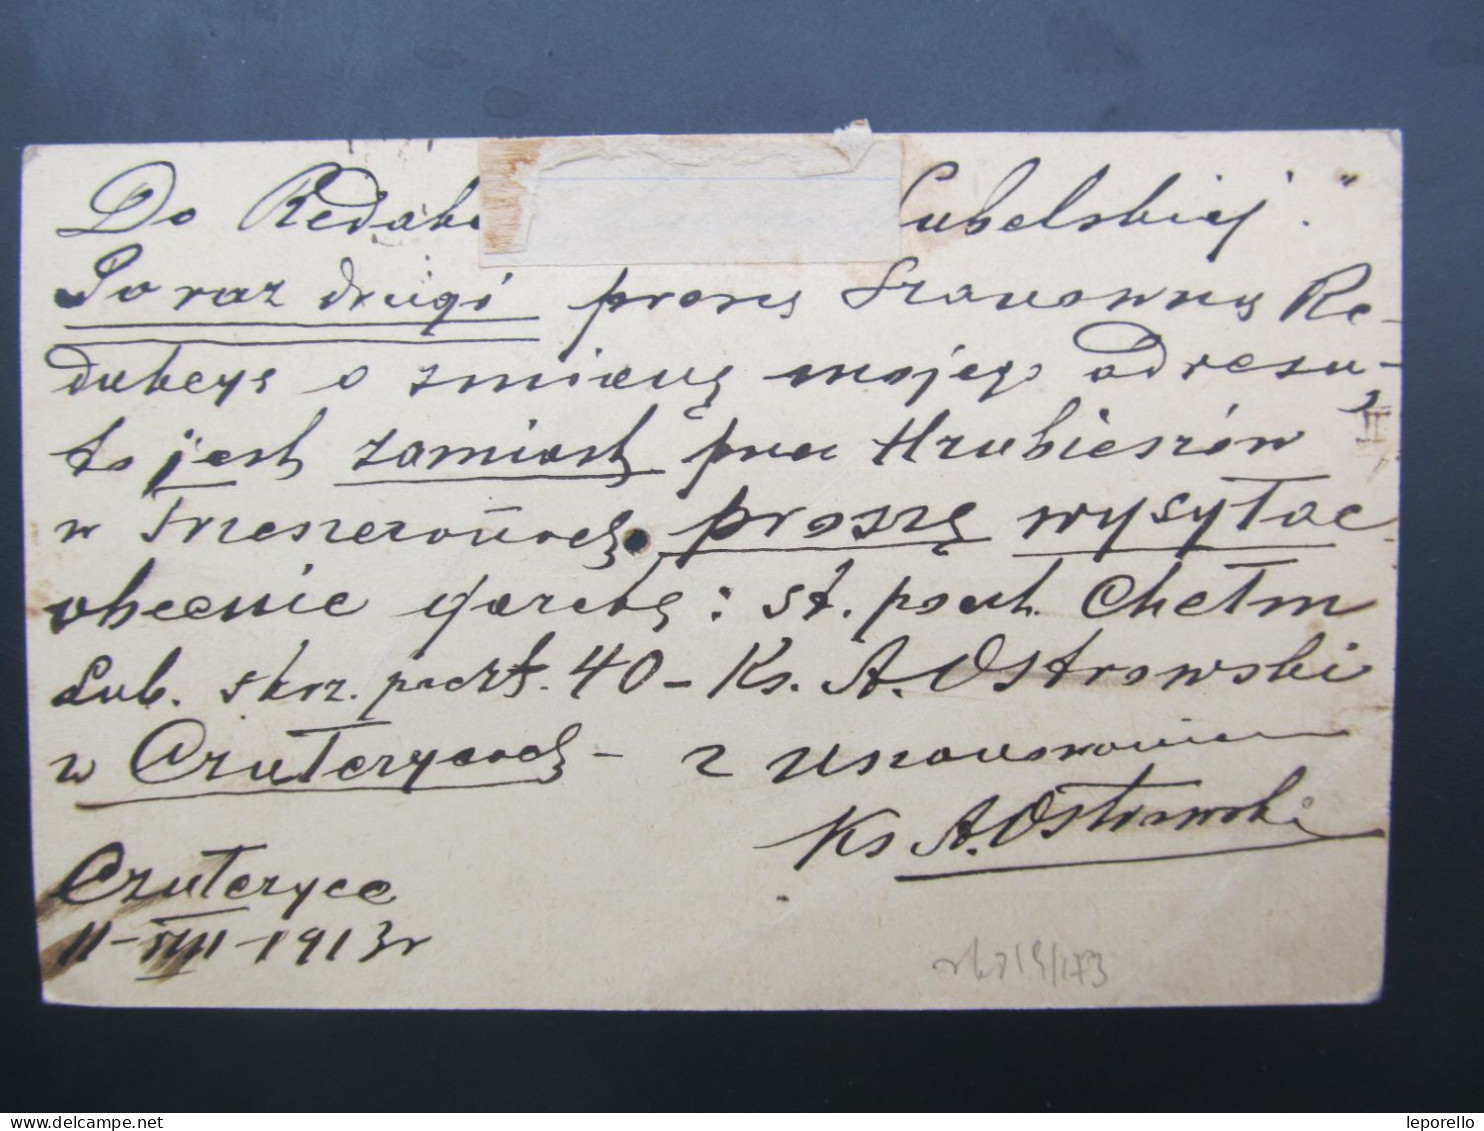 Do Redak Lubelskiej."
Po raz drugi proszę Szanowną Re-
dakcyę o zmianę mojego adresu -
to jest zamiast prez Hrubieszów
w Trzeszczanach proszę wysyłac
obecnie gazetę: st. poczt. Chełm
Lub. skrz. poczt. 40 - Ks. A. Ostrowski
w Czułczycach - z uszanowaniem
Ks A. Ostrowski
Czułczyce
11-VIII-1913 r
delcampe.net
leporello